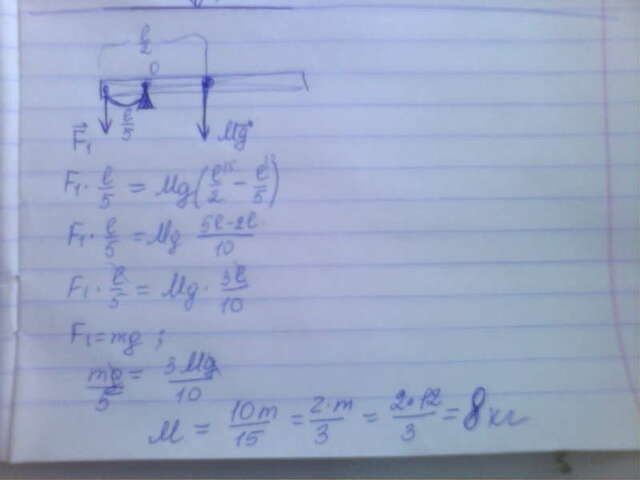 ℓ/2
O
ℓ/5
F₁ Mg
F₁ · ℓ/5 = Mg(ℓ/2 - ℓ/5)
F₁ · ℓ/5 = Mg (5ℓ-2ℓ)/10
F₁ · ℓ/5 = Mg · 3ℓ/10
F₁ = mg ;
mg/5 = 3Mg/10
M = 10m/15 = 2·m/3 = 2·12/3 = 8 кг